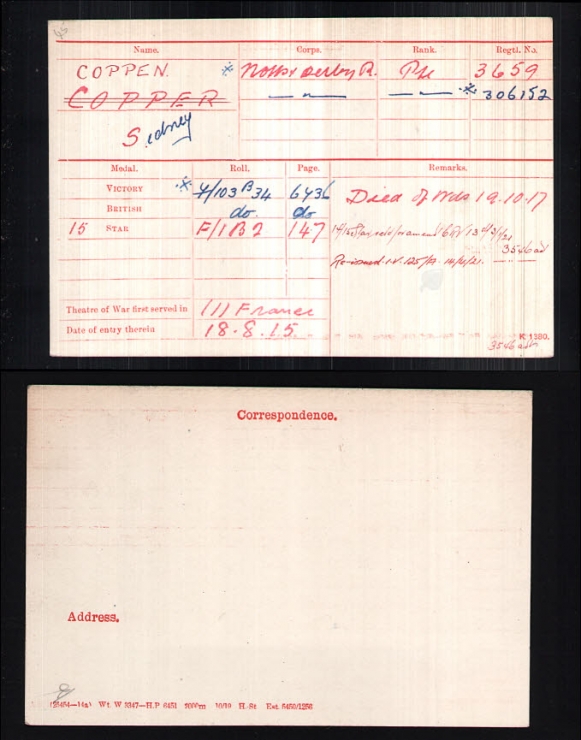 Name. Corps. Rank. Regtl. No.
COPPEN. * Notts & Derby R. Pte 3659
COPPER — " — — " — * 306152
Sidney
Medal. Roll. Page. Remarks.
VICTORY * Y/103 B34 6436 Died of Wds 19.10.17
BRITISH do. do
15 STAR F/1B2 147
3546 ad
Re-issued IV. 125/A. 14/6/21.
Theatre of War first served in (1) France
Date of entry therein 18.8.15.
K 1380.
Correspondence.
Address.
Wt. W 3347—H.P 6451 5000m 10/19 H. St Est. 5450/1256